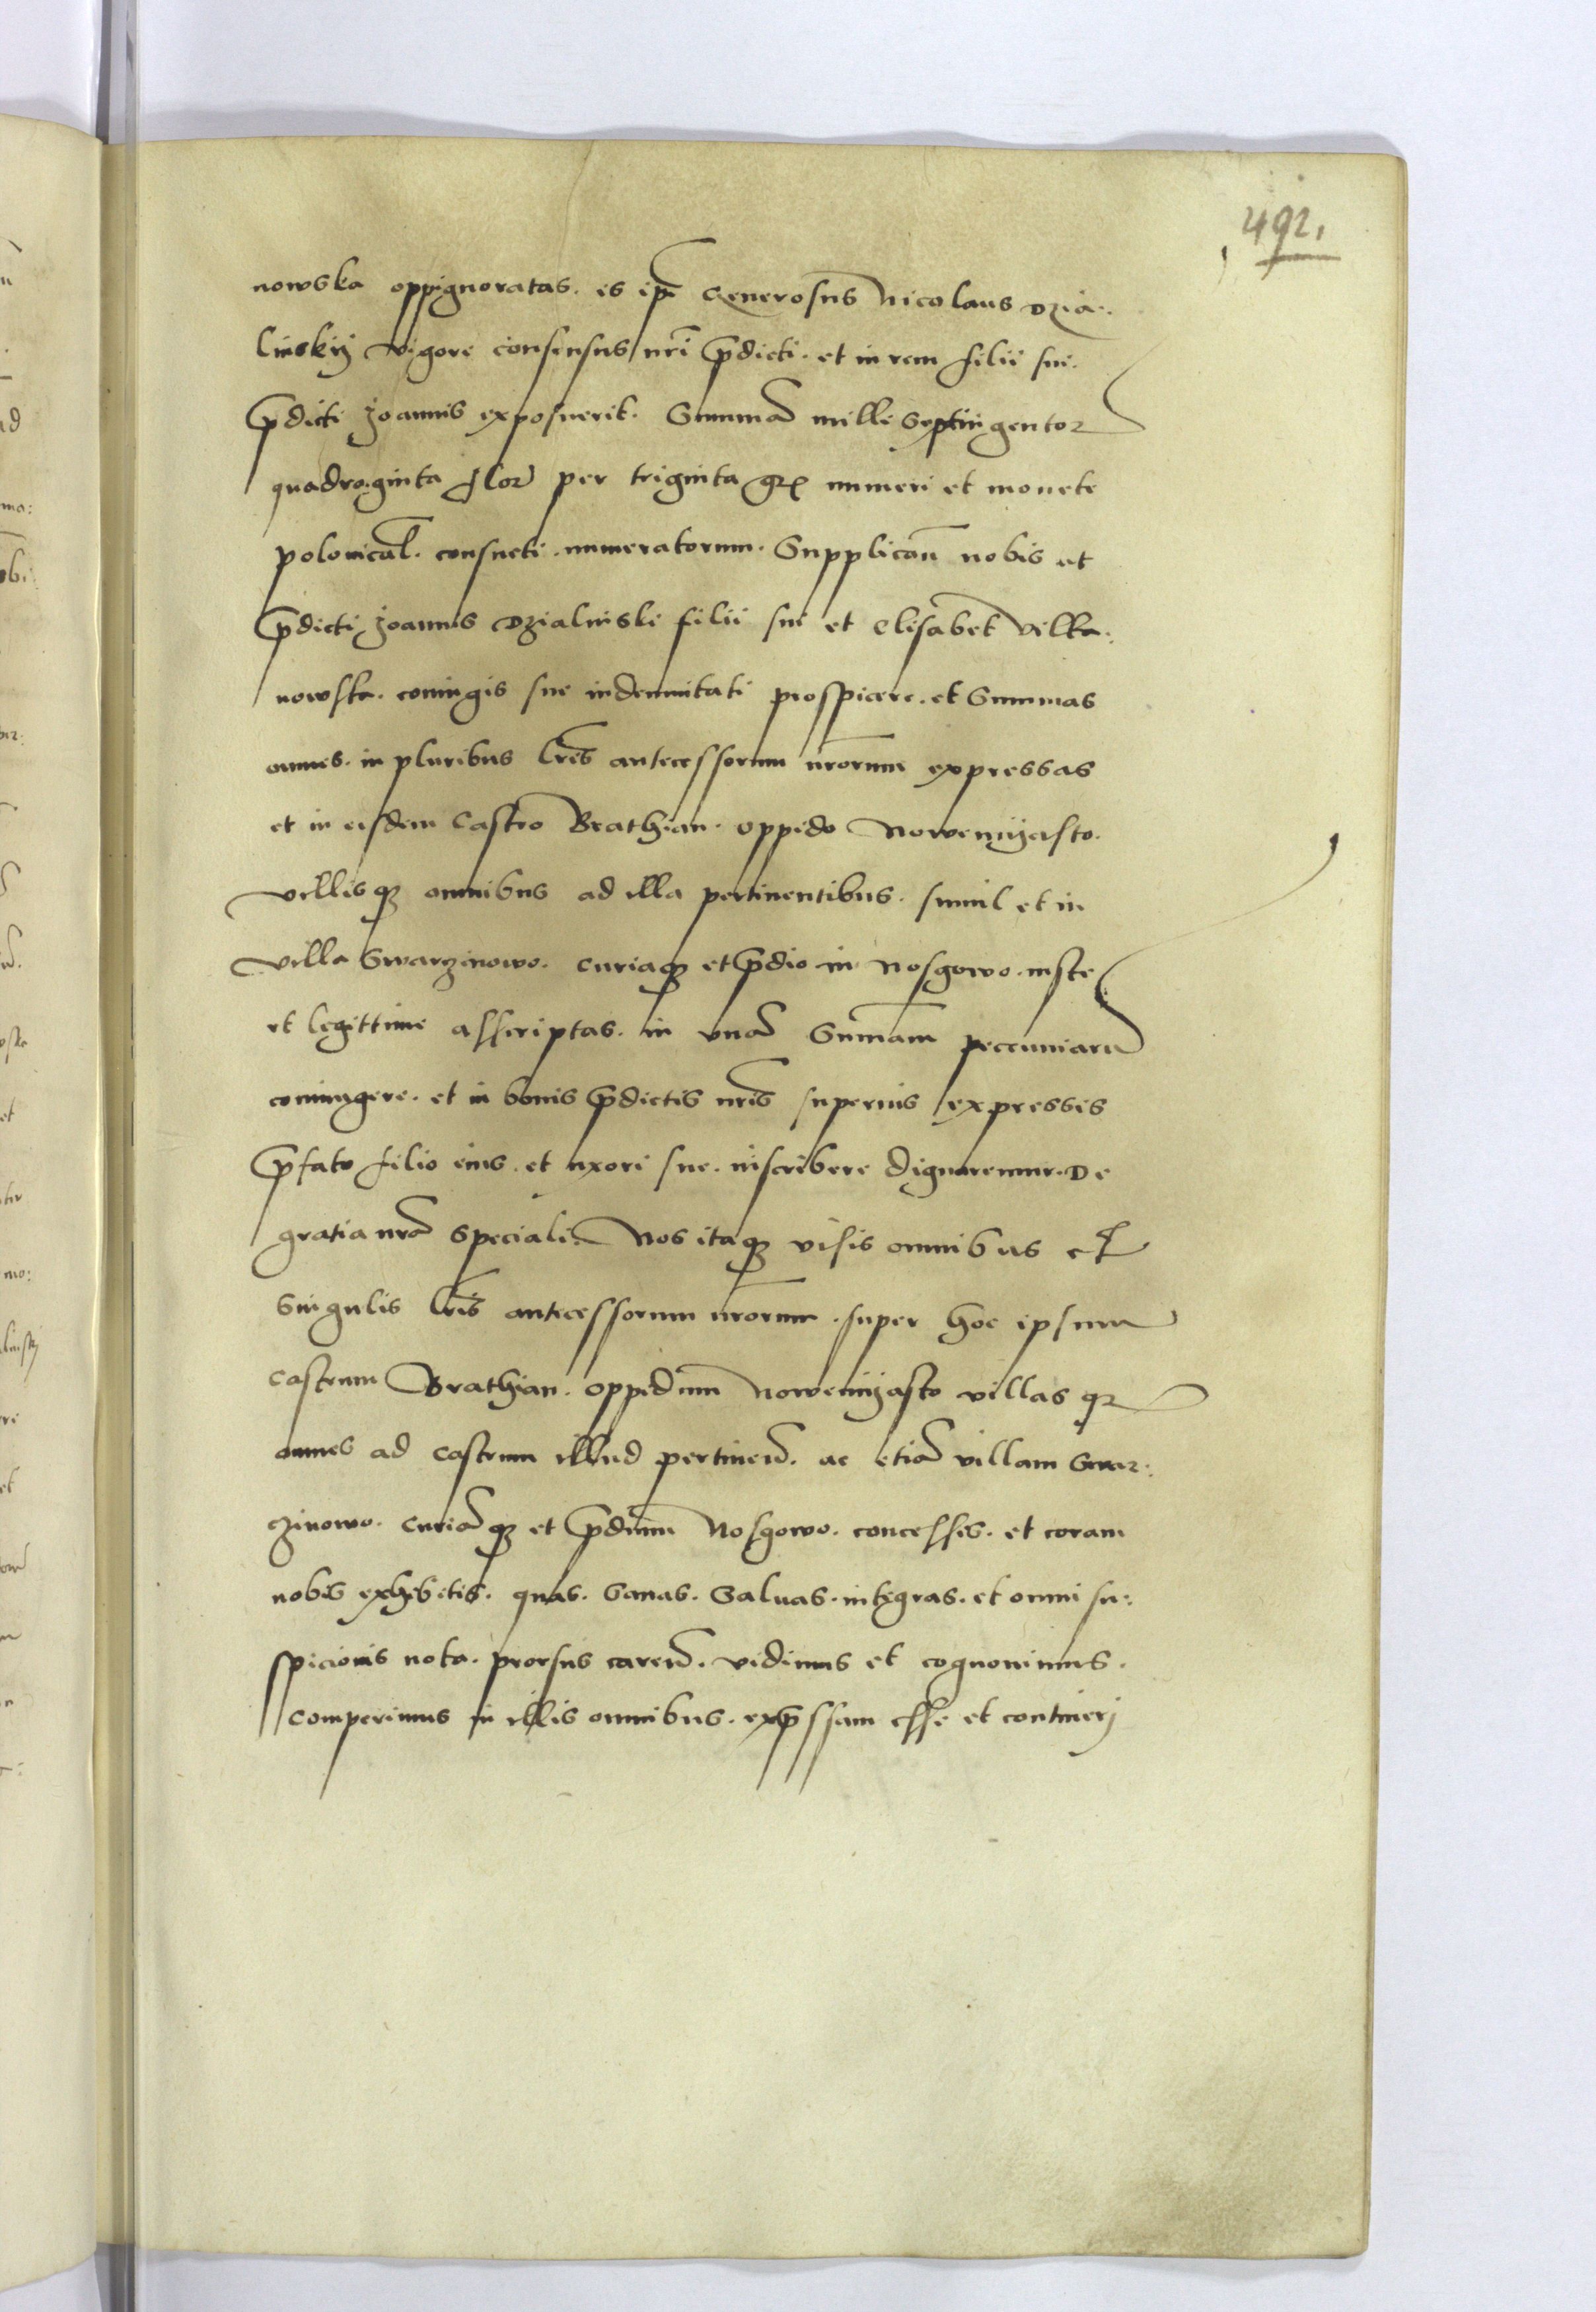 492.
nowska oppignoratas. is ip̄e Generosus Nicolaus Dzia:
linskij vigore consensus nr̄i p̄dicti. et in rem filii sui.
p̄dicti Joannis exposuerit. Summā mille septingentoꝝ
quadraginta floꝝ per triginta gꝝ numeri et monete
polonical̄. consueti. numeratorum. Supplicaū nobis ut
p̄dicti Joannis Dzialinski filii sui et Elisabet Vilka:
nowska. coniugis sue indemnitati prospicere. et Summas
omnes. in pluribus lr̄is antecessorum nr̄orum expressas
et in eisdem Castro Brathian. oppido Nowemyasto.
villisqꝫ omnibus ad illa pertinentibus. simul et in
villa Swarzinowo. curiaqꝫ et p̄dio in Nosgowo. iuste
et legittime asscriptas. in vnā Sum̄am peccuniarū
coniungere. et in bonis p̄dictis nr̄is superius expressis
p̄fato filio eius. et uxori sue. inscribere dignaremur. De
gratia nr̄a speciali. Nos itaqꝫ visis omnibus et
Singulis lr̄is antecessorum nr̄orum. super hoc ipsum
castrum Brathian. oppidum Nowemyasto villas qꝫ
omnes ad castrum illud pertineñ. ac etiā villam Swar:
zinowo. curiāqꝫ et p̄dium Nosgowo. concessis. et coram
nobis exhibitis. quas. Sanas. Saluas. integras. et omni su:
spicionis nota. prorsus careñ. vidimus et cognouimus.
comperimus in illis omnibus. exp̄ssam esse et contineri